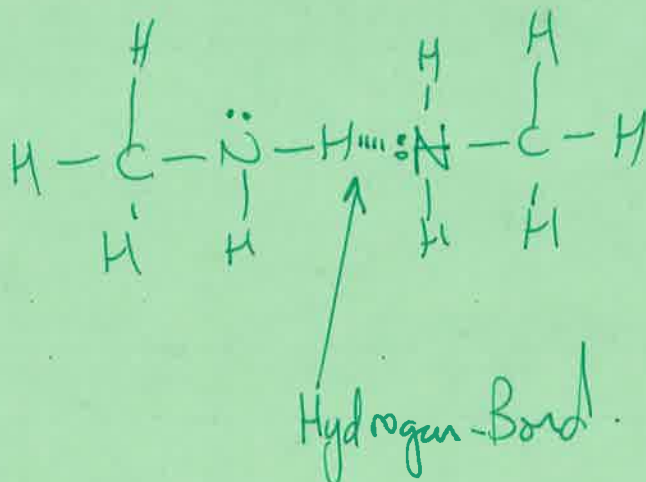 H H H
H — C — N̈ — H ····:N — C — H
H H H H
Hydrogen-Bond.